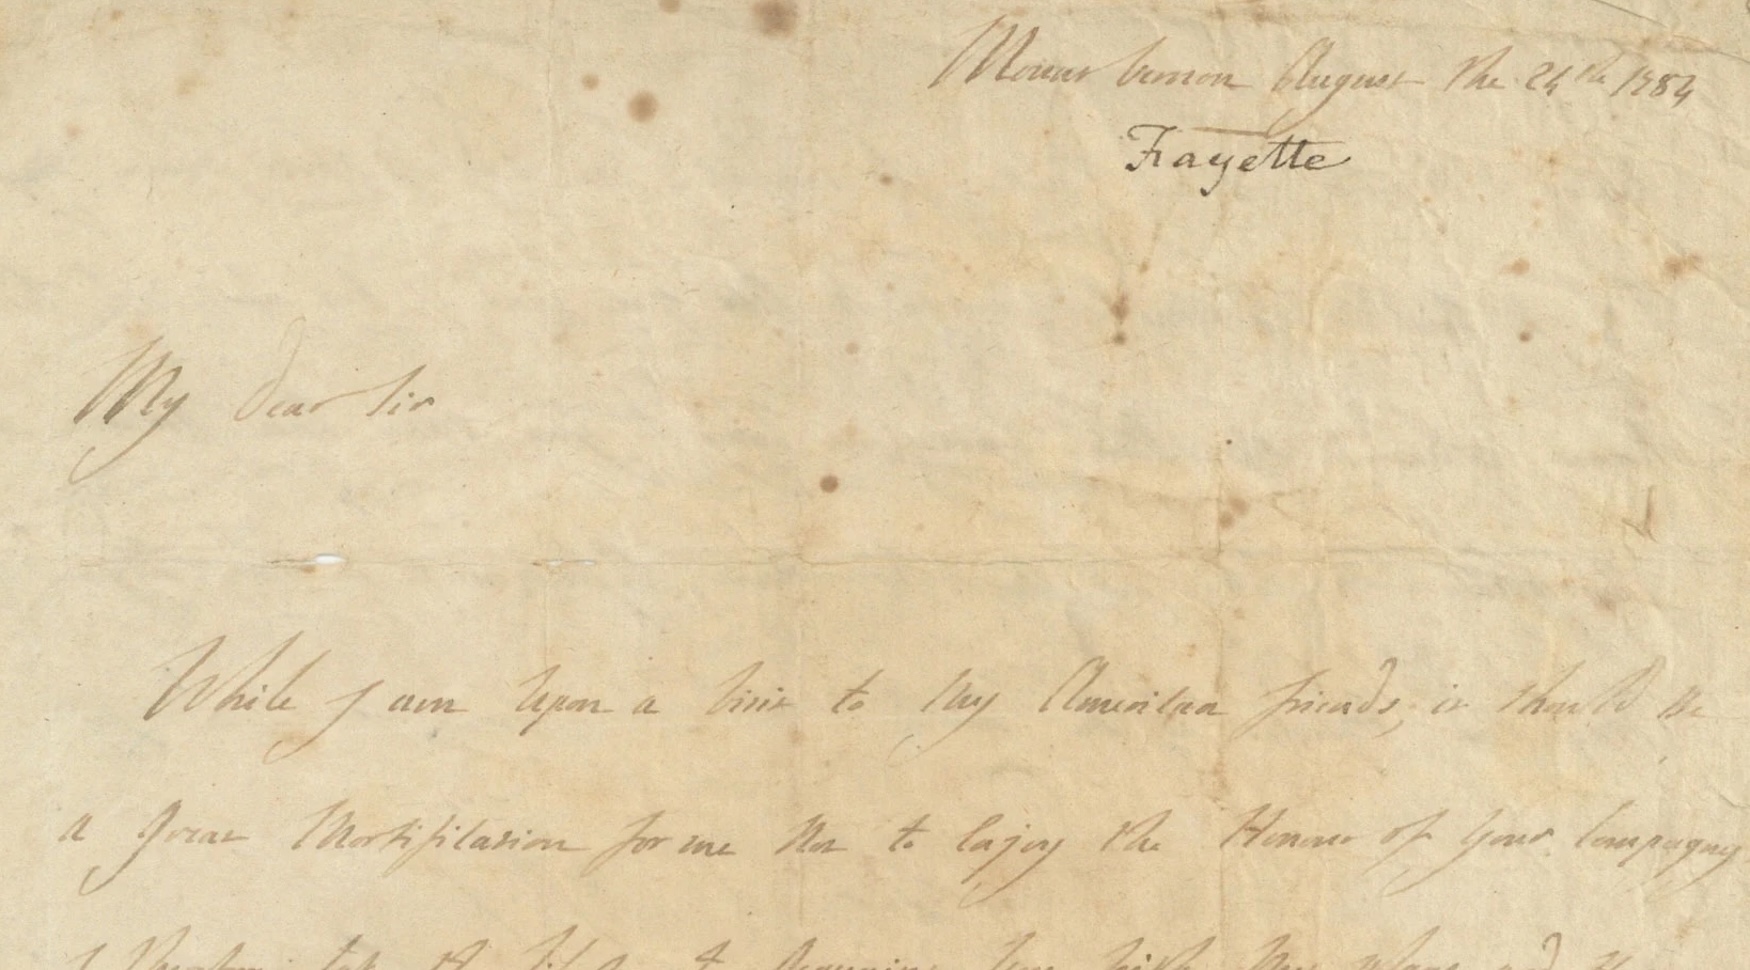 Mount vernon August the 24th 1784
Fayette
My dear Sir
While I am Upon a Visit to My American friends, it should be
a Great Mortification for me Not to Enjoy the Honour of Your Compagny